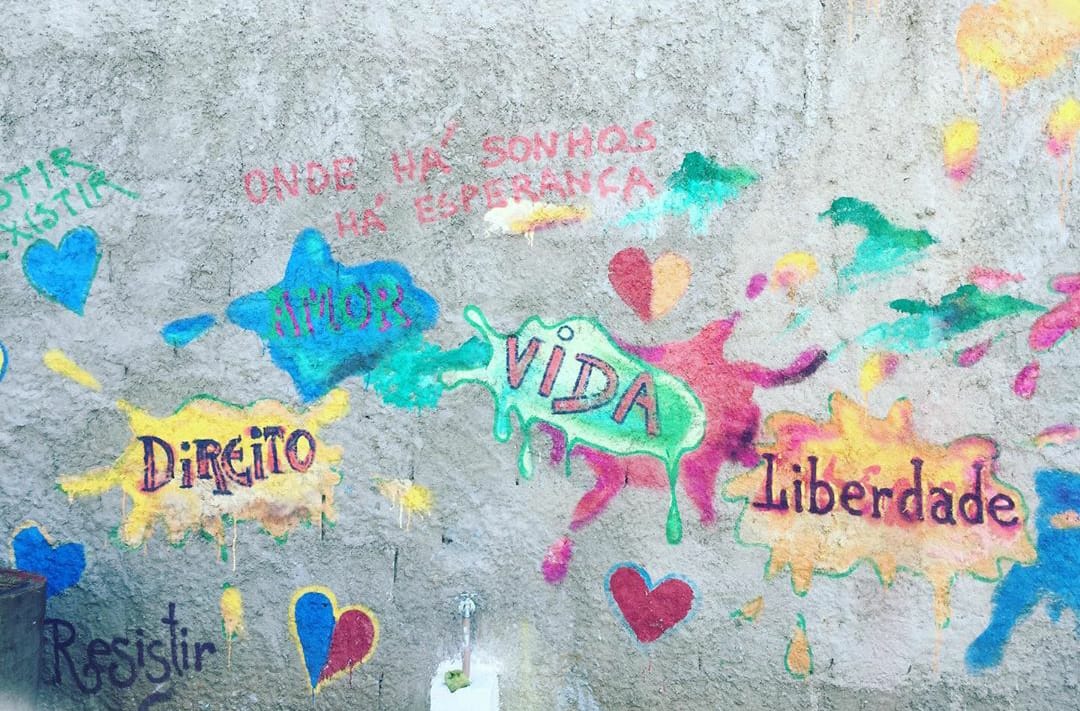 ONDE HÁ SONHOS
HÁ ESPERANÇA
AMOR
VIDA
DIREITO
Liberdade
Resistir